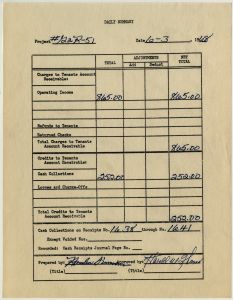 DAILY SUMMARY
Project #122R-51 Date 12-3 1948
TOTAL ADJUSTMENTS NET TOTAL
Add Deduct
Charges to Tenants Account Receivable:
Operating Income 865.00 865.00
Refunds to Tenants
Returned Checks
Total Charges to Tenants Account Receivable 865.00
Credits to Tenants Account Receivable:
Cash Collections 252.00 252.00
Losses and Charge-Offs
Total Credits to Tenants Account Receivable 252.00
Cash Collections on Receipts No. 1638 through No. 1641
Except Voided Nos.
Recorded: Cash Receipts Journal Page No.
Prepared by:
(Title) (Title)